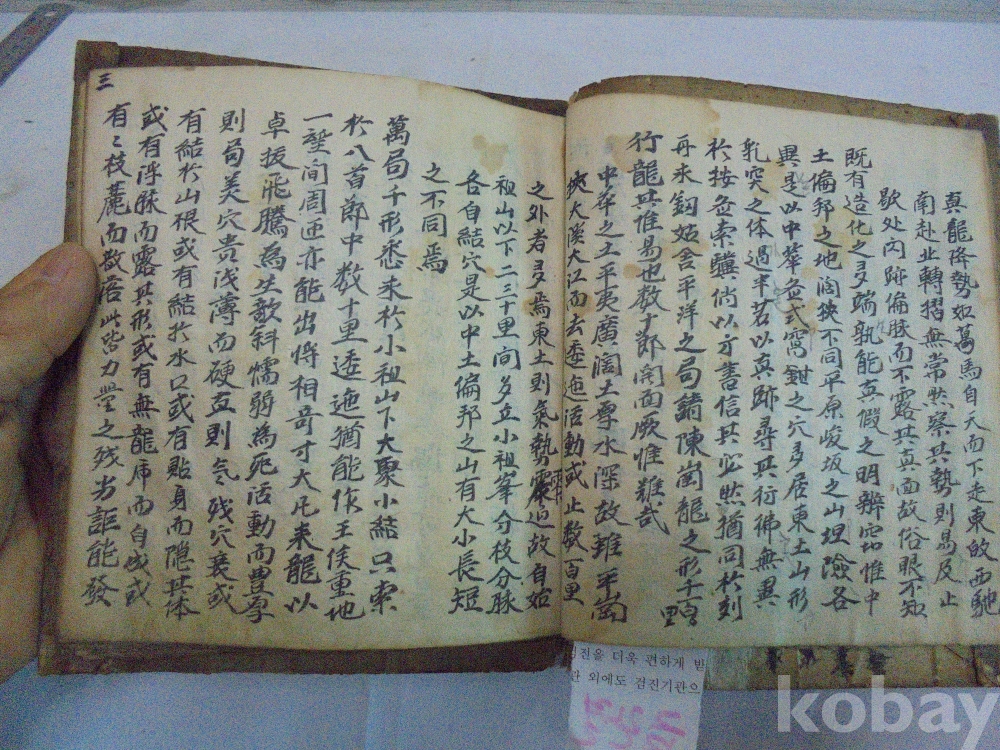 真龍降勢如萬馬自天而下走東放西馳
南赴北轉摺無常然察其勢則易及止
歇处內跡偏脉而不露其真面故俗眼不知
既有造化之多端孰能真假之明辨宓地惟中
土偏邦之地闊狹不同平原峻坂之山坦險各
異是以中華盆式窩鉗之穴多居東土山形
乳突之体過半若以真跡尋其彷彿無異
於按畵索驥倘以方書信其必然猶同於刻
舟求釰姑舍平洋之局鋪陳崗龍之形千里
行龍其惟易也数十郎闊面厥惟難哉
中華之土平夷廣闊土厚水深故雖平崗
狹大溪大江而去委迤活動或止数百里
之外者多焉東土則氣勢窄迫故自始
祖山以下二三十里间多立小祖峯分枝分脉
各自結穴是以中土偏邦之山有大小長短
之不同焉
萬局千形悉来於小祖山下大聚小結只索
於八首郎中数十里逶迤猶能作王侯重地
一望间周匝亦能出将相奇寸大凡来龍以
卓拔飛騰為生歌斜懦弱為死活動而豊厚
則局美穴貴浅薄而硬直則气残穴衰或
有結於山根或有結於水口或有貼身而隱其体
或有浮脉而露其形或有無龍虎而自成或
有〻枝麓而数倍此皆力量之残劣詎能發
三
검진을 더욱 편하게 받
관 외에도 검진기관으
kobay